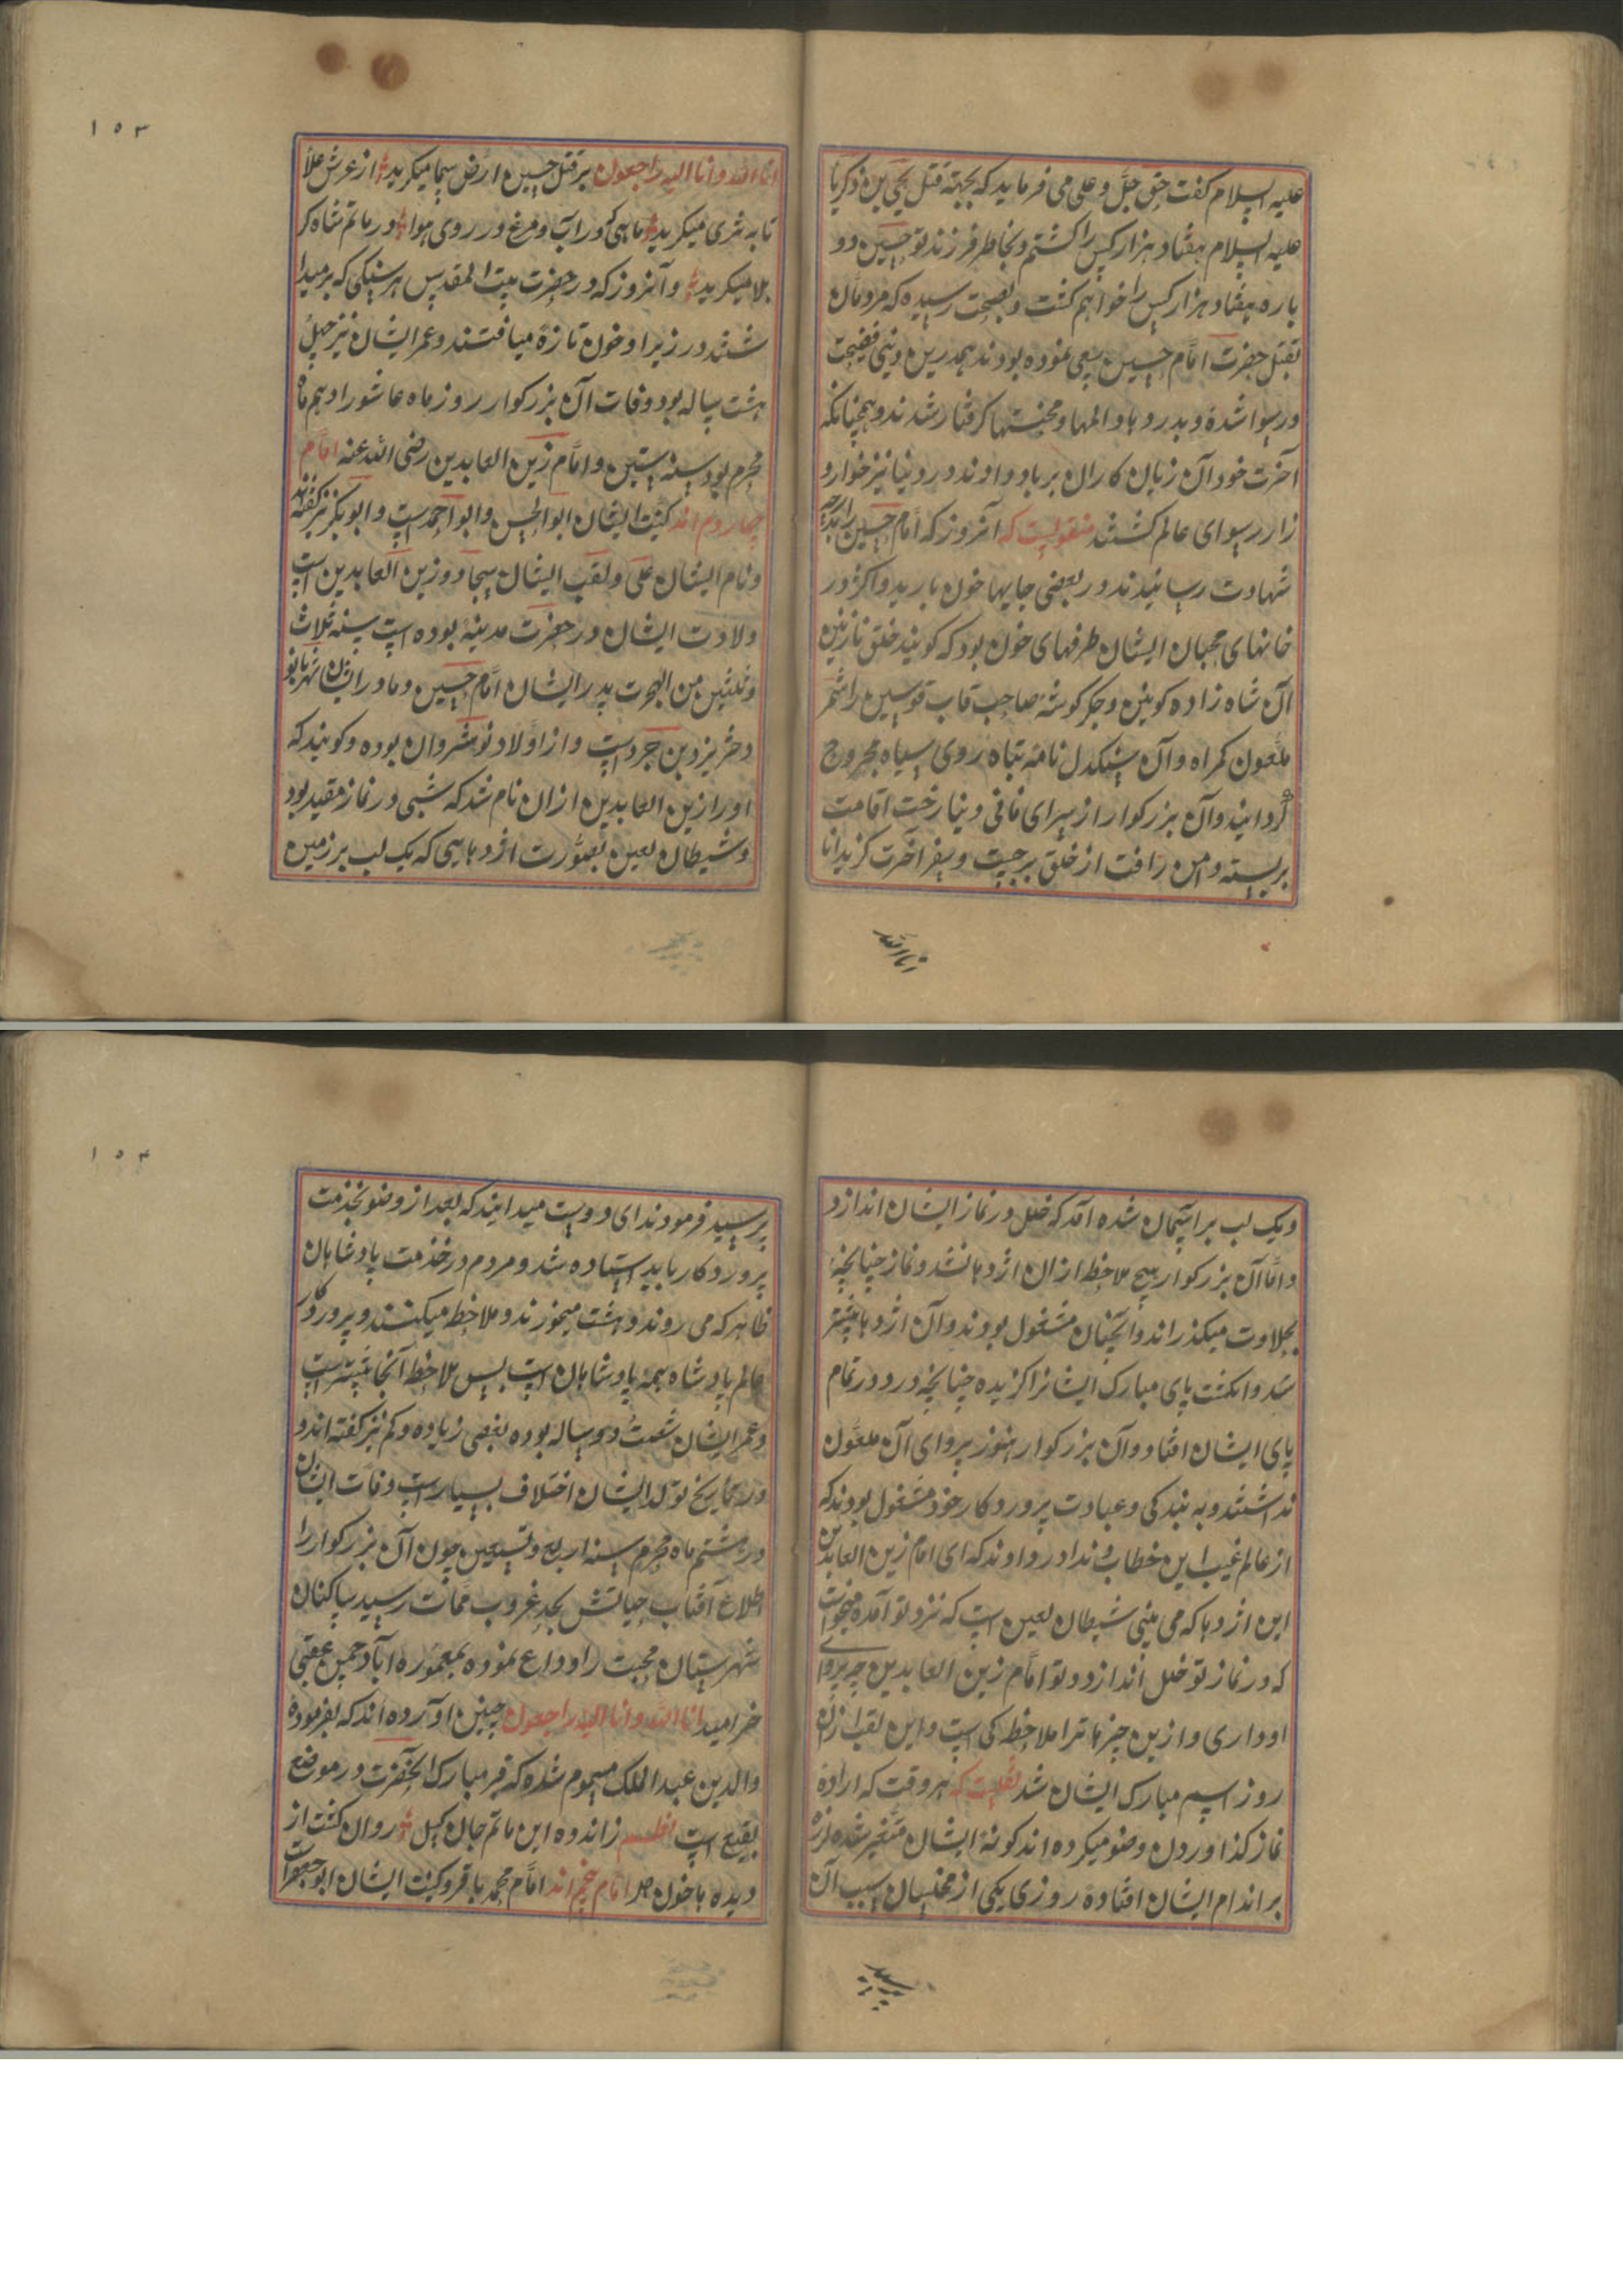 علیه السلام کفت حق جل و علی می فرماید که بجهته قتل یحیی بن ذکریا
علیه السلام هفتاد هزار کس را کشتم و بخاطر فرزند تو حسین دو
باره هفتاد هزار کس را خواهم کشت و بصحت رسیده که مردمان
بقتل حضرت امام حسین سعی نموده بودند همدرین دنیی فضیحت
و رسوا شده و بدرد و بلا و المها و محنتها کرفتار شدند و همچنانکه
آخرت خود آن زیان کاران برباد دادند در دنیا نیز خوار و
زار رسوای عالم کشتند منقولست که آنروز که امام حسین را بدرجه
شهادت رسانیدند در بعضی جایها خون بارید و اکثر در
خانهای محبان ایشان ظرفهای خون بود که کویند خلق نازنین
آن شاه زاده کونین و جکر کوشه صاحب قاب قوسین را شمر
ملعون کمراه و آن سنکدل نامه تباه روی سیاه مجروح
کردانید و آن بزرکوار از سرای فانی دنیا رخت اقامت
بربسته دامن رافت از خلق برچیت و سفر آخرت کزید انا
انا الله
انا الله و انا الیه راجعون بر قتل حسین ارض سما میکرید از عرش علا
تا به ثری میکرید ماهی که در آب و مرغ در روی هوا در ماتم شاه کر
بلا میکرید و آنروز که در حضرت بیت المقدس هر سنکی که برمیدا
شتند در زیر او خون تازه میافتند و عمر ایشان نیز چهل
هشت ساله بود وفات آن بزرکوار روز ماه عاشورا دهم ماه
محرم بود سنه ستین و امام زین العابدین رضی الله عنه امام
چهاردم اند کنیت ایشان ابوالحسن و ابو احمد است و ابوبکر نیز کفته اند
و نام ایشان علی و لقب ایشان سجاد و زین العابدین است
ولادت ایشان در حضرت مدینه بوده است سنه ثلاث
و ثلثین من الهجرت پدر ایشان امام حسین و مادر ایشان شهربانو
دختر یزدین جردست و از اولاد نوشروان بوده و کویند که
او را زین العابدین از ان نام شد که شبی در نماز مقید بود
و شیطان لعین بصورت اژدهایی که یک لب بر زمین
۱۵۳
و یک لب بر آسمان شده آمد که خلل در نماز ایشان اندازد
و اما آن بزرکوار هیچ ملاحظ از ان اژدها نشد و نماز چنانچه
بحلاوت میکذراند و آنچنان مشغول بودند و آن اژدها پیشتر
شد و انکشت پای مبارک ایشانرا کزیده چنانچه درد در تمام
پای ایشان افتاد و آن بزرکوار هنوز پروای آن ملعون
نداشتند و به بندکی و عبادت پروردکار خود مشغول بودند که
از عالم غیب این خطاب و ندا در دادند که ای امام زین العابدین
این اژدها که می بینی شیطان لعین است که نزد تو آمده میخواست
که در نماز تو خلل اندازد و تو امام زین العابدین چه پروای
او داری و ازین چیزها ترا ملاحظ کی است و این لقب از ان
روز اسم مبارک ایشان شد نقلست که هر وقت که اراده
نماز کذاوردن وضو میکرده اند کونۀ ایشان متغیر شده لرزه
بر اندام ایشان افتاده روزی یکی از مخلصان سبب آن
پرسید
پرسید فرمودند ای دوست میدانید که بعد از وضو بخدمت
پروردکار باید استاده شد و مردم در خدمت پادشاهان
ظاهر که می روند دهشت میخورند و ملاحظ میکنند و پروردکار
عالم پادشاه همه پادشاهان است پس ملاحظ آنجا بیشتر است
و عمر ایشان شصت و دو ساله بوده بعضی زیاده و کم نیز کفته اند و
در تاریخ تولد ایشان اختلاف بسیار است وفات ایشان
در هشتم ماه محرم سنه اربع و تسعین چون آن بزرکوار را
اطلاع آفتاب حیاتش بحد غروب ممات رسید ساکنان
شهرستان محبت را وداع نموده بمعموره آباد چمن عقبی
خرامید انا الله و انا الیه راجعون چنین آورده اند که بفرموده
والدین عبد الملک مسموم شده که قبر مبارک آنحضرت در موضع
بقیع است نظم ز اندوه این ماتم جان کسل روان کشت از
دیده ها خون دل امام پنجم اند امام محمد باقر و کنیت ایشان ابو جعفر است
۱۵۴